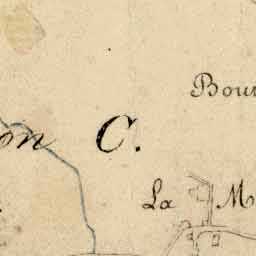 Bour
on C.
La M